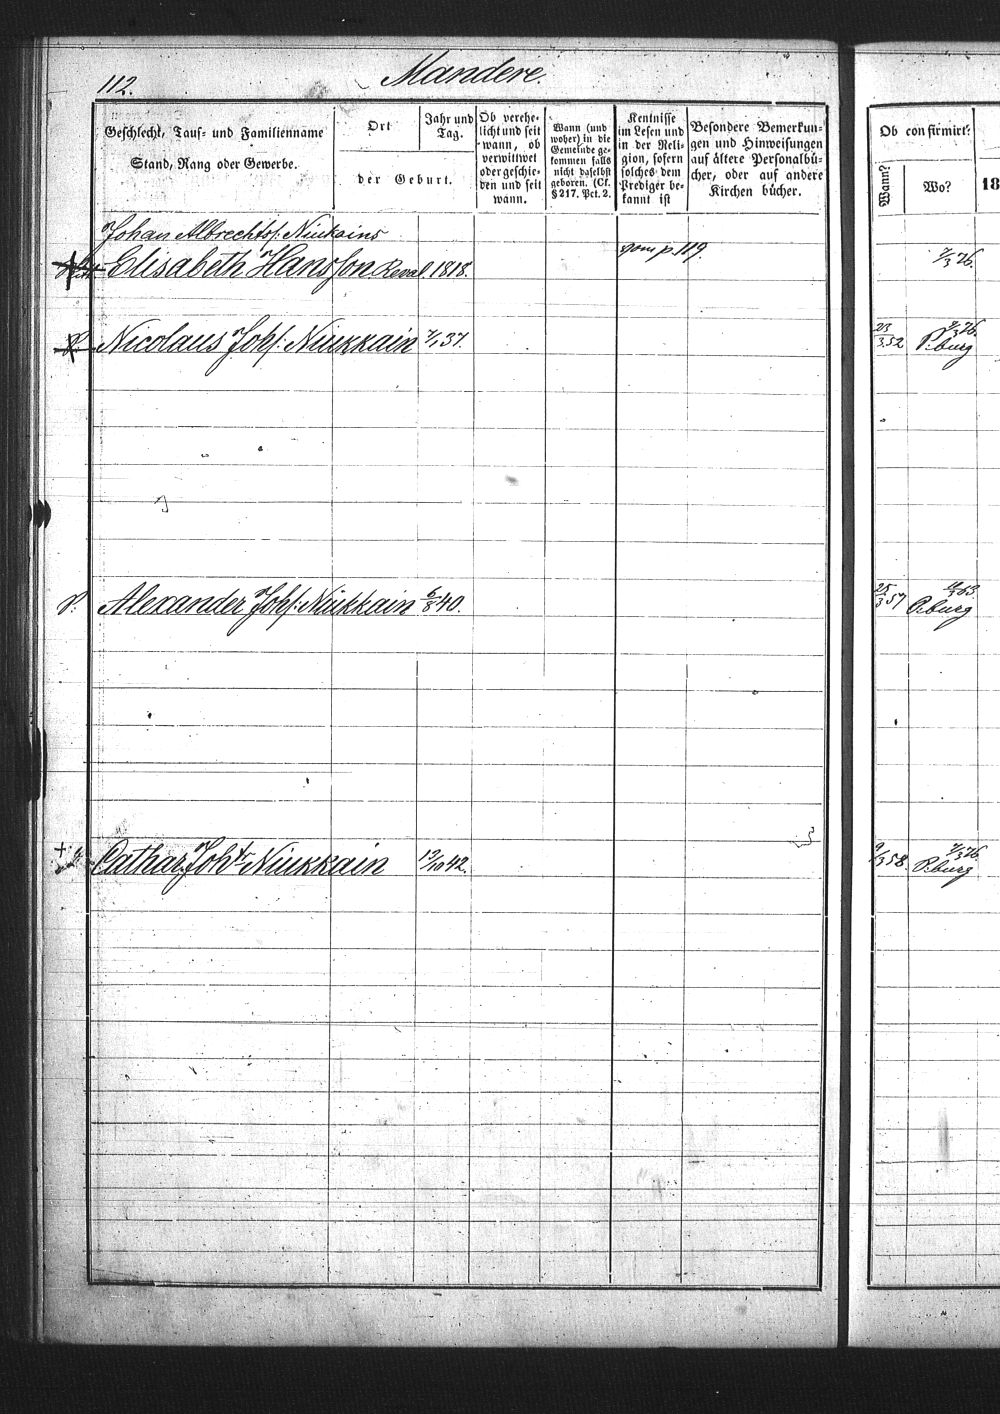 112.
Mandere.
Geschlecht, Tauf- und Familienname
Stand, Rang oder Gewerbe.
Ort
Jahr und
Tag.
der Geburt.
Ob verehe-
licht und seit
wann, ob
verwittwet
oder geschie-
den und seit
wann.
Wann (und
woher) in die
Gemeinde ge-
kommen falls
nicht daselbst
geboren. (Cf.
§ 217. Pct. 2.
Kentnisse
im Lesen und
in der Reli-
gion, sofern
solches dem
Prediger be-
kannt ist
Besondere Bemerkun-
gen und Hinweisungen
auf ältere Personalbü-
cher, oder auf andere
Kirchen bücher.
Ob confirmirt:
Wann?
Wo?
18
Johan Albrechts Niukains
Elisabeth Hansson Reval. 1818. p. 119. 7/3 76.
Nicolaus Johs: Niukkain 7/1 37. 23/3 52 7/3 76.
P:burg
Alexander Johs: Niukkain 6/8 40. 25/3 57 63
P:burg
Cathar Joh Niukkain 19/10 42. 9/3 58. 7/3 76.
P:burg